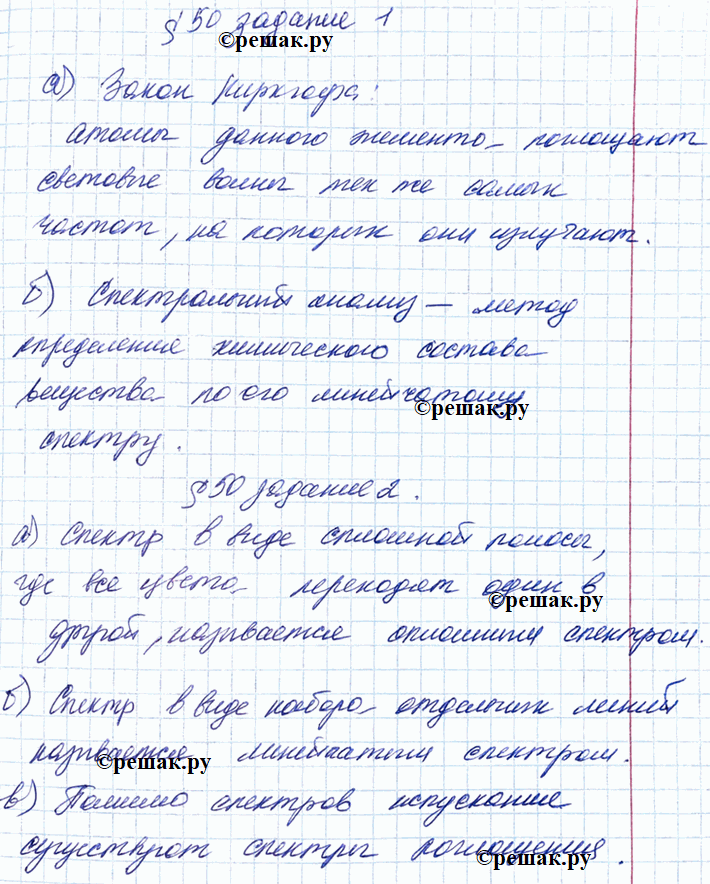 § 50 задание 1
©решак.ру
а) Закон Кирхгофа:
атомы данного элемента поглощают
световые волны тех же самых
частот, на которых они излучают.
б) Спектральный анализ — метод
определения химического состава
вещества по его линейчатому
©решак.ру
спектру.
§ 50 задание 2.
а) Спектр в виде сплошной полосы,
где все цвета переходят один в
©решак.ру
другой, называется сплошным спектром.
б) Спектр в виде набора отдельных линий
называется линейчатым спектром.
©решак.ру
в) Помимо спектров испускания
существуют спектры поглощения.
©решак.ру